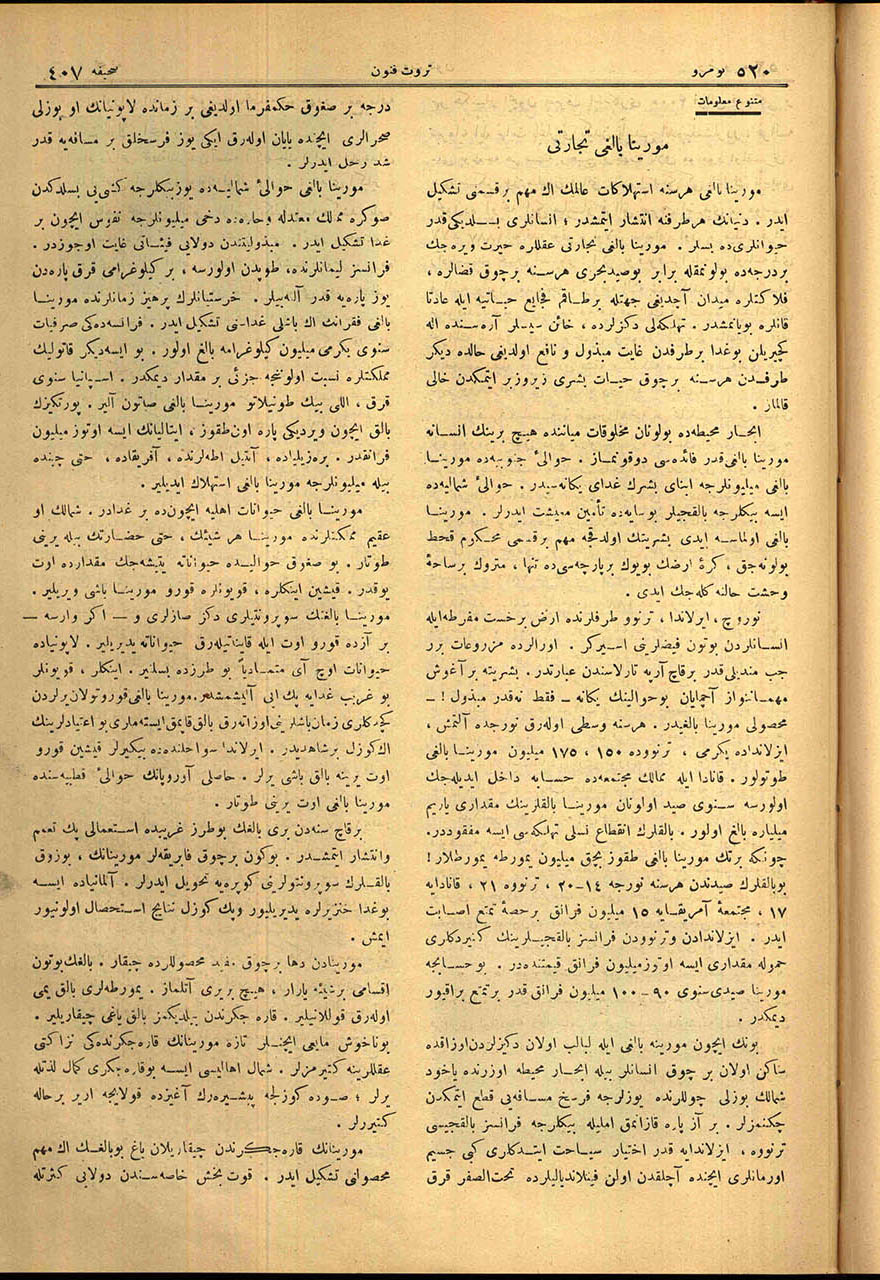 ٥٢٠ نومرو
ثروت فنون
صحیفه ٤٠٧
متنوع معلومات
مورینا بالغی تجارتی
مورینا بالغی هرسنه استهلاكات عالمك اك مهم برقسمنی تشكیل
ایدر . دنیانك هرطرفنه انتشار ایتمشدر ؛ انسانلری بسلدیكی قدر
حیوانلری ده بسلر . مورینا بالغی تجارتی عقللره حیرت ویره جك
بردرجه ده بولونمقله برابر بوصیدبحری هرسنه برچوق قضالره ،
فلاكتلره میدان آچدیغی جهتله برطاقم فجایع حیاتیه ایله عادتا
قانلره بویانمشدر . تهلكه لی دكزلرده ، خائن سیسلر آره سنده اله
كچیریلن بوغدا برطرفدن غایت مبذول و نافع اولدیغی حالده دیكر
طرفدن هرسنه برچوق حیات بشری زیروزبر ایتمكدن خالی
قالماز .
ابحار محیطه ده بولونان مخلوقات میاننده هیچ برینك انسانه
مورینا بالغی قدر فائده سی دوقونماز . حوالئ جنوبیه ده مورینا
بالغی میلیونلرجه ابنای بشرك غدای یكانه سیدر . حوالئ شمالیه ده
ایسه بیكلرجه بالقجیلر بوسایه ده تأمین معیشت ایدرلر . مورینا
بالغی اولماسه ایدی بشریتك اولدقجه مهم برقسمی محكوم قحط
بولونه جق ، كرۀ ارضك بویوك برپارچه سی ده تنها ، متروك برساحۀ
وحشت حالنه كله جك ایدی .
نوروچ ، ایرلاندا ، ترنوو طرفلرنده ارض برخست مفرطه ایله
انسانلردن بوتون فیضلرینی اسیركر . اورالرده مزروعات برر
جب مندیلی قدر برقاچ آرپه تارلاسندن عبارتدر . بشریته برآغوش
مهماننواز آچمایان بوحوالینك یكانه ــ فقط نه قدر مبذول ! ــ
محصولی مورینا بالغیدر . هرسنه وسطی اوله رق نورجده آلتمش ،
ایزلانداده یكرمی ، ترنووده ۱٥۰ ، ۱۷٥ میلیون مورینا بالغی
طوتولور . قانادا ایله ممالك مجتمعه ده حسابه داخل ایدیله جك
اولورسه سنوی صید اولونان مورینا بالقلرینك مقداری یاریم
میلیاره بالغ اولور . بالقلرك انقطاع نسلی تهلكه سی ایسه مفقوددر.
چونكه برتك مورینا بالغی طقوز بچق میلیون یمورطه یمورطلار !
بوبالقلرك صیدندن هرسنه نورجه ۱٤-۲۰ ، ترنووه ۲۱ ، قانادایه
۱۷ ، مجتمعۀ آمریقایه ۱٥ میلیون فرانق برحصۀ تمتع اصابت
ایدر . ایزلاندادن وترنوودن فرانسز بالقجیلرینك كتیردكلری
حموله مقداری ایسه اوتوزمیلیون فرانق قیمتنده در . بوحسابجه
مورینا صیدی سنوی ۹۰-۱۰۰ میلیون فرانق قدر برتمتع براقیور
دیمكدر .
بونك ایچون مورینه بالغی ایله لبالب اولان دكیزلردن اوزاقده
ساكن اولان بر چوق انسانلر بیله ابحار محیطه اوزرنده یاخود
شمالك بوزلی چوللرنده یوزلرجه فرسخ مسافه یی قطع ایتمكدن
چكنمزلر . بر آز پاره قازانمق املیله بیكلرجه فرانسز بالقجیسی
ترنووه ، ایزلاندایه قدر اختیار سیاحت ایتدكلری كبی جسیم
اورمانلری ایچنده آچلقدن اولن فینلاندیالیلرده تحت الصفر قرق
درجه بر صغوق حكمفرما اولدیغی بر زمانده لاپونیانك او بوزلی
صحرالری ایچنده پایان اوله رق ایكی یوز فرسخلق بر مسافه یه قدر
شد رحل ایدرلر .
مورینا بالغی حوالئ شمالیه ده یوزبیكلرجه كشی یی بسلدكدن
صوكره ممالك معتدله وحاره ده دخی میلیونلرجه نفوس ایچون بر
غدا تشكیل ایدر . مبذولیتندن دولایی فیئاتی غایت اوجوزدر .
فرانسز لیمانلرنده ، طوپدن اولورسه ، بر كیلوغرامی قرق پاره دن
یوز پاره یه قدر آلنه بیلر . خرستیانلرك پرهیز زمانلرنده مورینا
بالغی فقرانك اك باشلی غداسنی تشكیل ایدر . فرانسه ده كی صرفیات
سنوی یكرمی میلیون كیلوغرامه بالغ اولور . بو ایسه دیكر قاتولیك
مملكتلره نسبت اولونجه جزئی بر مقدار دیمكدر . اسپانیا سنوی
قرق ، اللی بیك طونیلاتو مورینا بالغی صاتون آلیر . پورتكیزك
بالق ایچون ویردیكی پاره اون طقوز ، ایتالیانك ایسه اوتوز میلیون
فرانقدر . بره زیلیاده ، آنتیل اطه لرنده ، آفریقاده ، حتی چینده
بیله میلیونلرجه مورینا بالغی استهلاك ایدیلیر .
مورینا بالغی حیوانات اهلیه ایچون ده بر غدادر . شمالك او
عقیم مملكتلرنده مورینا هر شیئك ، حتی حضارتك بیله یرینی
طوتار . بو صغوق حوالیده حیواناته یتیشه جك مقدارده اوت
یوقدر . قیشین اینكلره ، قویونلره قورو مورینا باشی ویریلیر .
مورینا بالغنك سوپرونتیلری دكز صازلری و ــ اكر وارسه ــ
بر آزده قورو اوت ایله قایناتیله رق حیواناته یدیریلیر . لاپونیاده
حیوانات اوچ آی متمادیاً بو طرزده بسلنیر . اینكلر ، قویونلر
بو غریب غدایه پك ایی آلیشمشلدر. مورینا بالغی قوروتولان یرلردن
كچدكلری زمان باشلرینی اوزاته رق بالق قاپمق ایسته ملری بو اعتیادلرینك
اك كوزل برشاهدیدر . ایرلاندا سواحلنده ده بیكیرلر قیشین قورو
اوت یرینه بالق باشی یرلر . حاصلی آوروپانك حوالئ قطبیه سنده
مورینا بالغی اوت یرینی طوتار .
برقاچ سنه دن بری بالغك بوطرز غریبده استعمالی پك تعمم
وانتشار ایتمشدر . بوكون برچوق فابریقه لر مورینانك ، بوزوق
بالقلرك سوپرونتولرینی كوبره یه تحویل ایدرلر . آلمانیاده ایسه
بوغدا خنزیرلره یدیریلیور وپك كوزل نتایج استحصال اولونیور
ایمش .
مورینادن دها برچوق مفید محصوللرده چیقار . بالغك بوتون
اقسامی برشیئه یارار ، هیچ بریری آتلماز . یمورطه لری بالق یمی
اوله رق قوللانیلیر . قاره جكرندن بیلدیكمز بالق یاغی چیقاریلیر .
بوناخوش مایعی ایچنلر تازه مورینانك قاره جكرنده كی نزاكتی
عقللرینه كتیرمزلر . شمال اهالیسی ایسه بوقاره جكری كمال لذتله
یرلر ؛ صوده كوزلجه پیشیره رك آغیزده قولایجه اریر برحاله
كتیررلر .
مورینانك قاره جكرندن چیقاریلان یاغ بوبالغك اك مهم
محصولنی تشكیل ایدر . قوت بخش خاصه سندن دولایی كثرتله